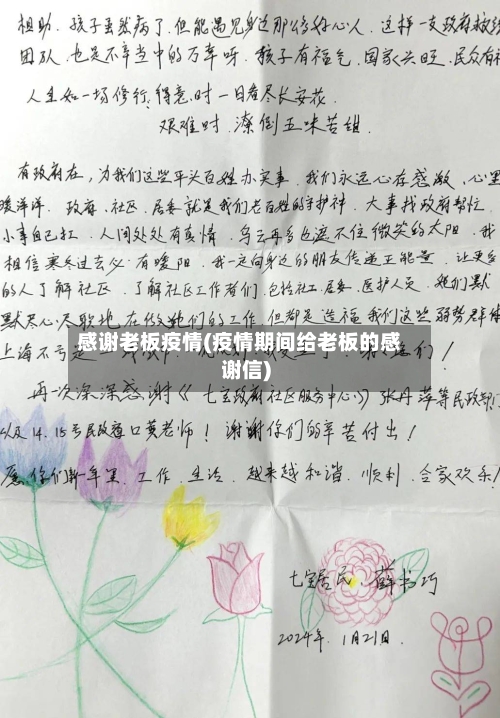 相助. 孩子虽然病了. 但能遇见身边那些好心人, 这样一支政府
团队, 也是不幸当中的万幸呀. 孩子有福气, 国家兴旺, 民众有
人生如一场修行, 得意时一日看尽长安花.
艰难时. 潦倒五味苦甜.
有政府在, 为我们这些平头百姓办实事. 我们永远心存感激, 心里
暖洋洋. 政府、社区、居委就是我们老百姓的守护神. 大事找政府帮忙.
小事自己扛. 人间处处有真情. 乌云再多也遮不住微笑的太阳. 我
相信寒冬过去必有暖阳. 我一定向身边的朋友传递正能量. 让更多
的人了解社区. 了解社区工作者们. 包括社工. 居委. 医护人员. 他们默
默尽心尽职地在做她们的工作. 但都是造福我们这些弱势群体
上海不亏是
感谢老板疫情(疫情期间给老板的感
谢信)
们!
再次深深感谢《七宝政府社区服务中心》张丹萍等民政部门
以及14. 15号民政窗口黄老师! 谢谢你们的辛苦付出!
愿你们新一年里. 工作. 生活. 越来越和谐. 顺利. 合家欢乐!
七宝居民: 薛书巧
2024年. 1月21日.